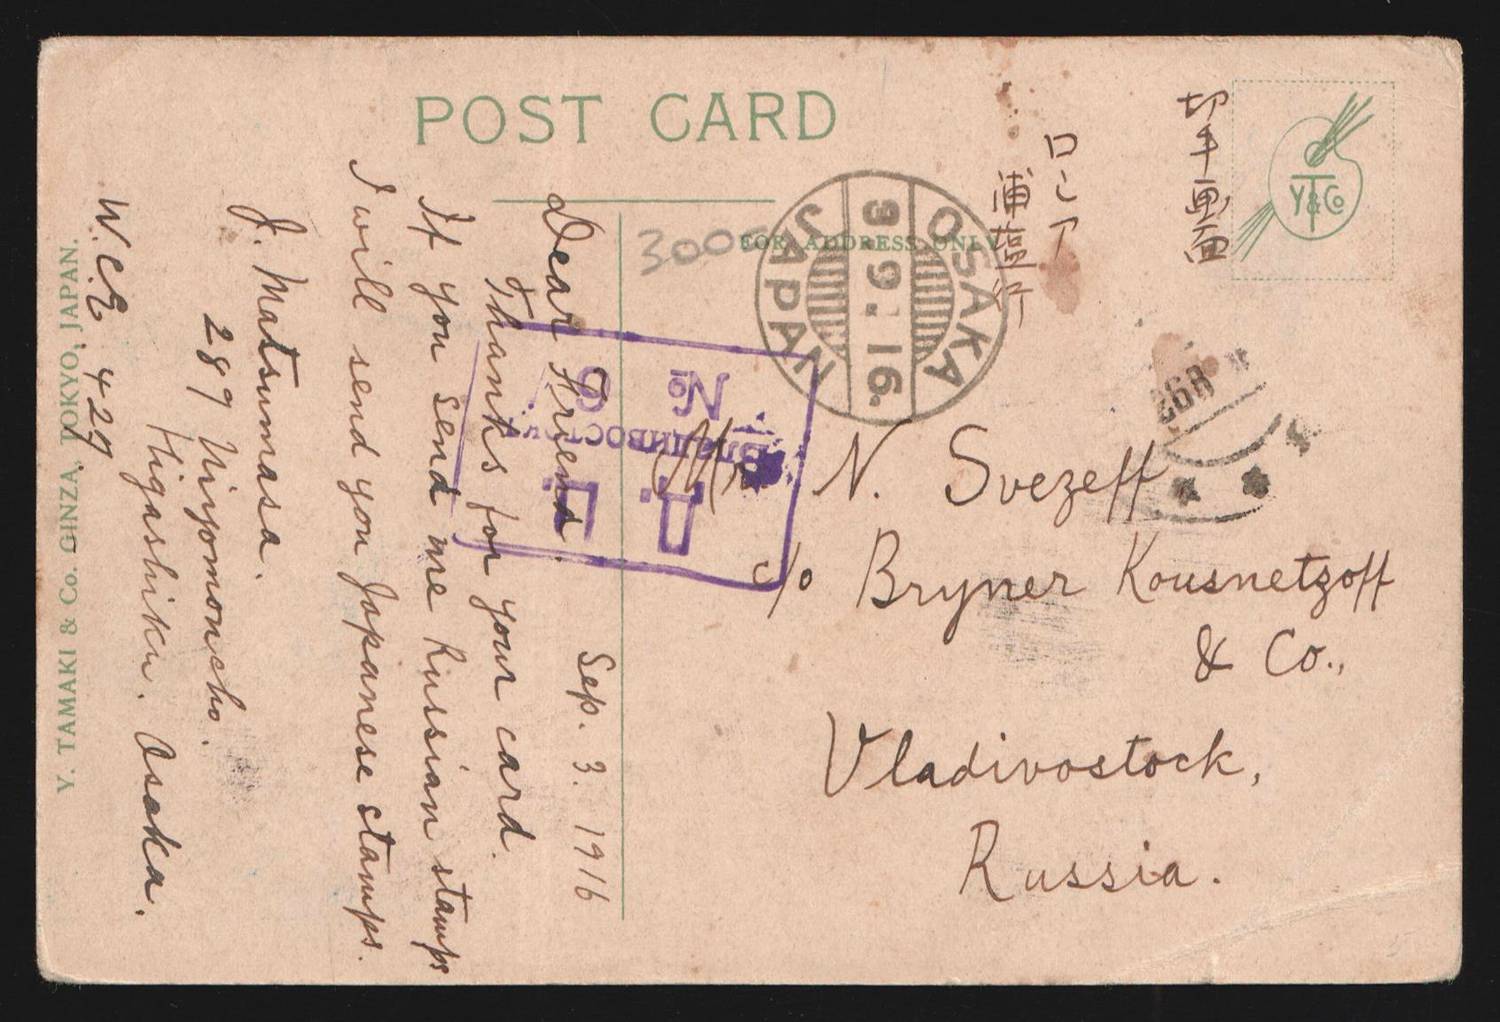 POST CARD
FOR ADDRESS ONLY
切手画面
ロシア
浦塩行
Y T & Co
OSAKA
9.9.16.
JAPAN
3000
Д. Ц.
Владивосток
№ 6
Mr. N. Svezeff
c/o Bryner Kousnetzoff
& Co.,
Vladivostock,
Russia.
Sep. 3. 1916
Dear Friend.
Thanks for your card.
If you send me Russian stamps
I will send you Japanese stamps.
J. Matsumasa.
289 Niyomoncho.
Higashiku. Osaka.
W.C.E. 429
Y. TAMAKI & Co. GINZA, TOKYO, JAPAN.